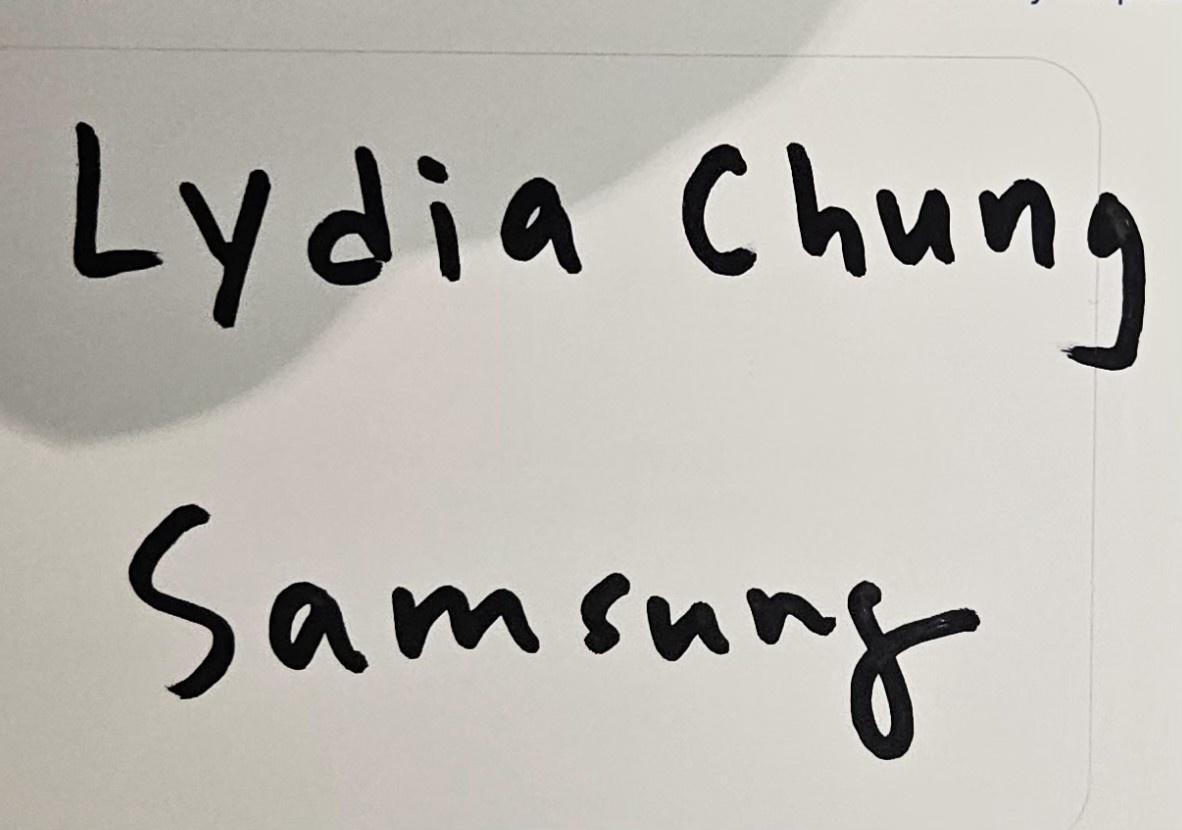 Lydia Chung
Samsung